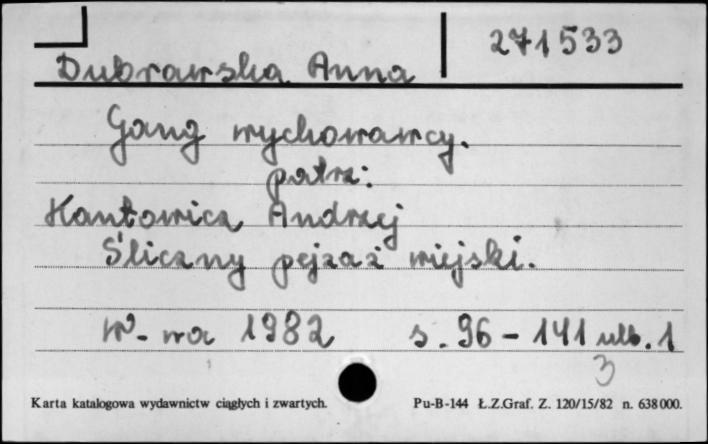 271533
Dubrawska Anna
Gang wychowawcy.
patrz:
Kantowicz Andrzej
Śliczny pejzaż wiejski.
W-wa 1982 s. 96 - 141 nlb. 1
3
Karta katalogowa wydawnictw ciągłych i zwartych. Pu-B-144 Ł.Z.Graf. Z. 120/15/82 n. 638000.